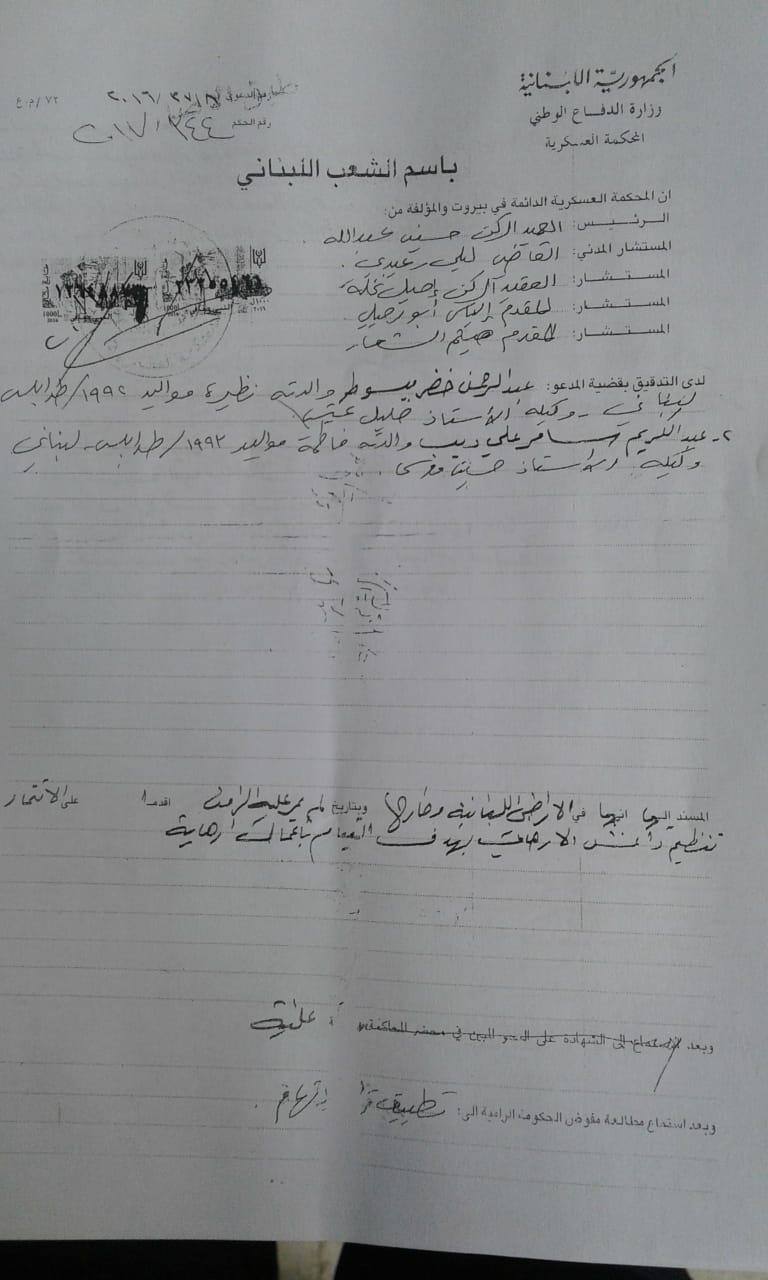 الجمهورية اللبنانية
وزارة الدفاع الوطني
المحكمة العسكرية
٧٢ /م.ع
رقم الحكم ٣٤٤ / ٢٠١٧
باسم الشعب اللبناني
ان المحكمة العسكرية الدائمة في بيروت والمؤلفة من:
الرئيس: العميد الركن حسين عبدالله
المستشار المدني: القاضي ليلى رعيدي
المستشار: العقيد الركن إميل نخلة
المستشار: المقدم الياس أبو رجيلي
المستشار: المقدم هيكم الشعار
لدى التدقيق بقضية المدعو: عبد الرحمن خضر بيسوطر والدته نظيرة مواليد ١٩٩٢/ طرابلس
لبناني - وكيله الأستاذ خليل
٢- عبد الكريم سامر علي ديب والدته فاطمة مواليد ١٩٩٣/ طرابلس - لبناني
وكيله الاستاذ
المسند اليهما انهما في الاراضي اللبنانية وخارجها وبتاريخ لم يمر عليه الزمن اقدما على الانتماء
تنظيم داعش الارهابي بهدف القيام بأعمال ارهابية
وبعد علنية
وبعد استماع مطالعة مفوض الحكومة الرامية الى: تطبيق